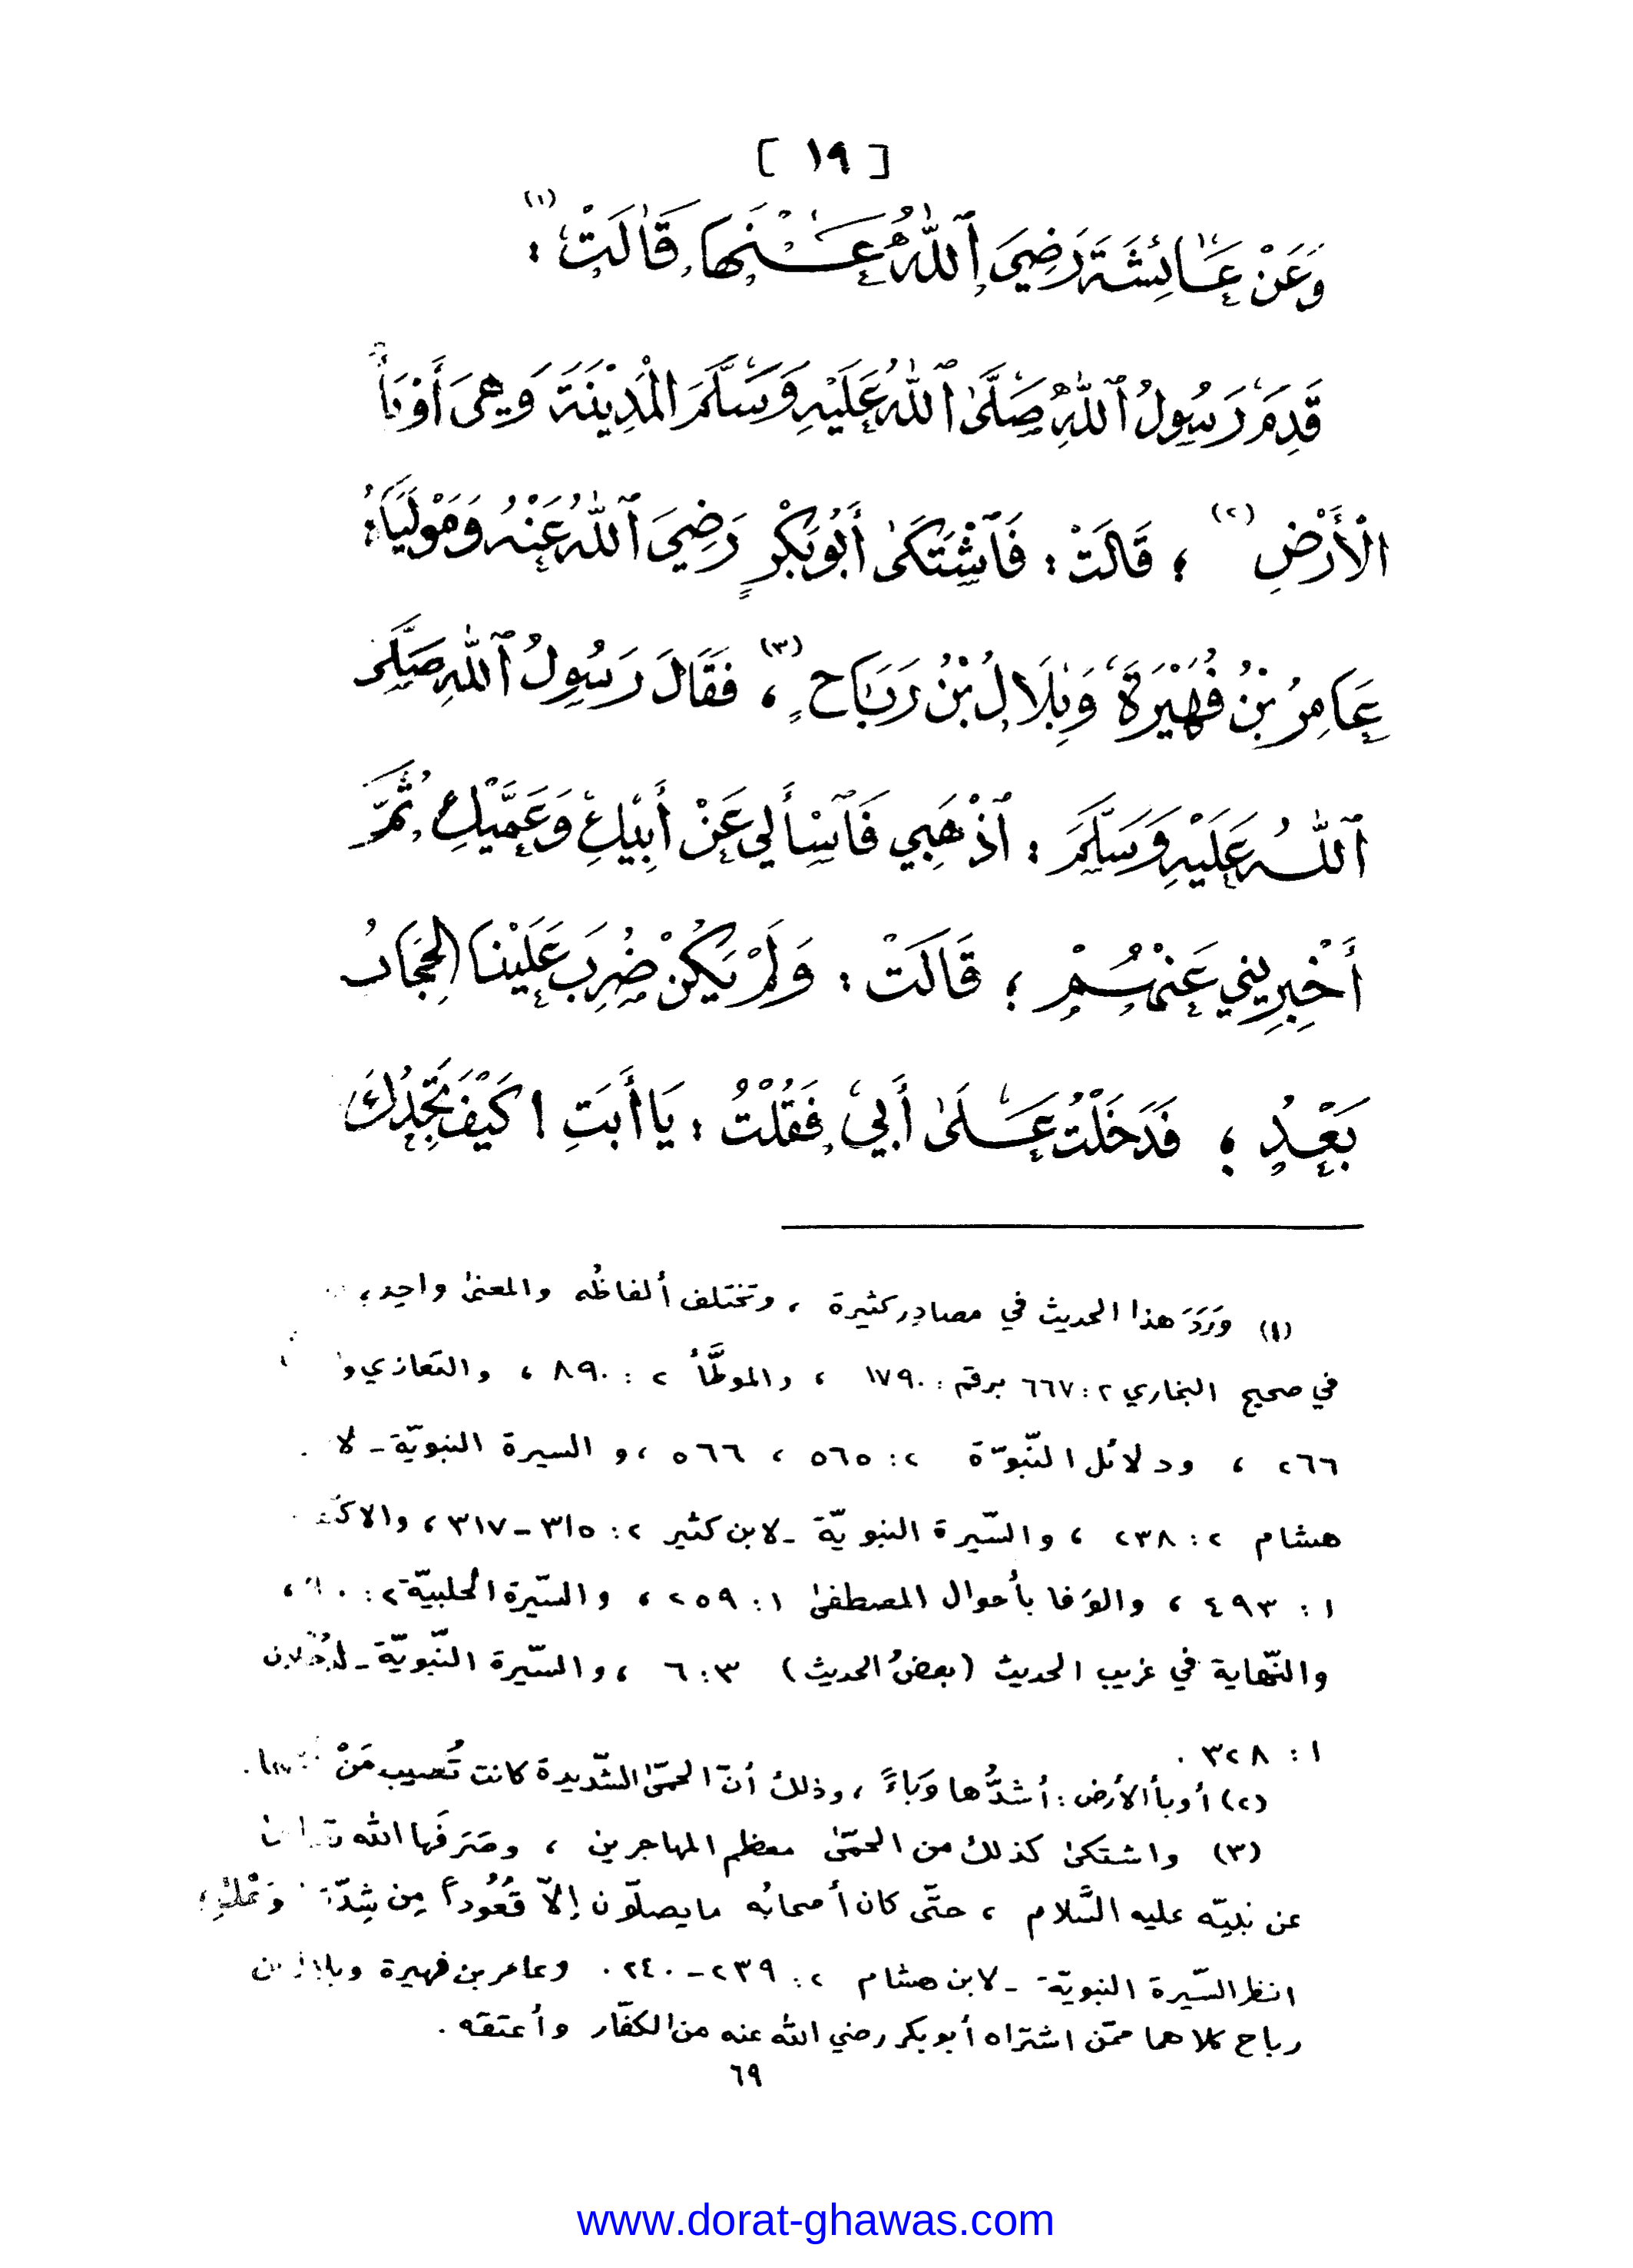 [ ١٩ ]
وَعَنْ عَائِشَةَ رَضِيَ ٱللَّهُ عَنْهَا قَالَتْ (١) :
قَدِمَ رَسُولُ ٱللَّهِ صَلَّىٰ ٱللَّهُ عَلَيْهِ وَسَلَّمَ الْمَدِيْنَةَ وَهِيَ أَوْبَأُ
الْأَرْضِ (٢) ؛ قَالَتْ : فَٱشْتَكَىٰ أَبُو بَكْرٍ رَضِيَ ٱللَّهُ عَنْهُ وَمَوْلَيَاهُ :
عَامِرُ بْنُ فُهَيْرَةَ وَبِلَالُ بْنُ رَبَاحٍ (٣) ، فَقَالَ رَسُولُ ٱللَّهِ صَلَّى
ٱللَّهُ عَلَيْهِ وَسَلَّمَ : ٱذْهَبِي فَٱسْأَلِي عَنْ أَبِيْكِ وَعَمَّيْكِ ثُمَّ
أَخْبِرِيني عَنْهُمْ ؛ قَالَتْ : وَلَمْ يَكُنْ ضُرِبَ عَلَيْنَا الحِجَابُ
بَعْدُ ؛ فَدَخَلْتُ عَلَىٰ أَبِي فَقُلْتُ : يَا أَبَتِ ! كَيْفَ تَجِدُكَ
(١) وَرَدَ هذا الحديث في مصادر كثيرة ، وتختلف ألفاظُه والمعنىٰ واحد ،
في صحيح البخاري ٢ : ٦٦٧ برقم : ١٧٩٠ ، والموطَّأ ٢ : ٨٩٠ ، والتعازي و
٢٦٦ ، ودلائل النّبوّة ٢ : ٥٦٥ ، ٥٦٦ ، و السيرة النبويّة ـ لا
هشام ٢ : ٢٣٨ ، والسّيرة النبويّة ـ لابن كثير ٢ : ٣١٥ ـ ٣١٧ ،
١ : ٤٩٣ ، والوَفا بأحوال المصطفىٰ ١ : ٢٥٩ ، والسّيرة الحلبيّة ٢ :
والنّهاية في غريب الحديث (بعضُ الحديث) ٣ : ٦ ، والسّيرة النّبويّة ـ
١ : ٣٢٨ .
(٢) أوبأ الأرض : أشدُّها وَباءً ، وذلك أنّ الحمّىٰ الشّديدة كانت تُصيب مَنْ
(٣) واشتكىٰ كذلك من الحمّىٰ معظم المهاجرين ، وصَرَفَها الله
عن نبيّه عليه السَّلام ، حتّى كان أصحابُه ما يصلّون إلاّ قُعُوداً مِن شِدّة
انظر السّيرة النبويّة ـ لابن هشام ٢ : ٢٣٩ ـ ٢٤٠ . وعامر بن فهيرة وبلال بن
رباح كلاهما ممّن اشتراه أبو بكر رضي الله عنه من الكفّار وأعتقه .
٦٩
www.dorat-ghawas.com